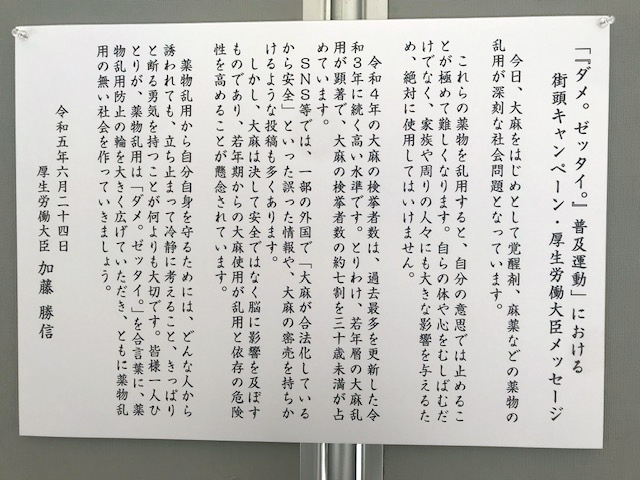 「『ダメ。ゼッタイ。』普及運動」における
街頭キャンペーン・厚生労働大臣メッセージ
今日、大麻をはじめとして覚醒剤、麻薬などの薬物の
乱用が深刻な社会問題となっています。
これらの薬物を乱用すると、自分の意思では止めるこ
とが極めて難しくなります。自らの体や心をむしばむだ
けでなく、家族や周りの人々にも大きな影響を与えるた
め、絶対に使用してはいけません。
令和4年の大麻の検挙者数は、過去最多を更新した令
和3年に続く高い水準です。とりわけ、若年層の大麻乱
用が顕著で、大麻の検挙者数の約七割を三十歳未満が占
めています。
SNS等では、一部の外国で「大麻が合法化している
から安全」といった誤った情報や、大麻の密売を持ちか
けるような投稿も多くあります。
しかし、大麻は決して安全ではなく脳に影響を及ぼす
ものであり、若年期からの大麻使用が乱用と依存の危険
性を高めることが懸念されています。
薬物乱用から自分自身を守るためには、どんな人から
誘われても、立ち止まって冷静に考えること、きっぱり
と断る勇気を持つことが何よりも大切です。皆様一人ひ
とりが、薬物乱用は「ダメ。ゼッタイ。」を合言葉に、薬
物乱用防止の輪を大きく広げていただき、ともに薬物乱
用の無い社会を作っていきましょう。
令和五年六月二十四日
厚生労働大臣 加藤 勝信